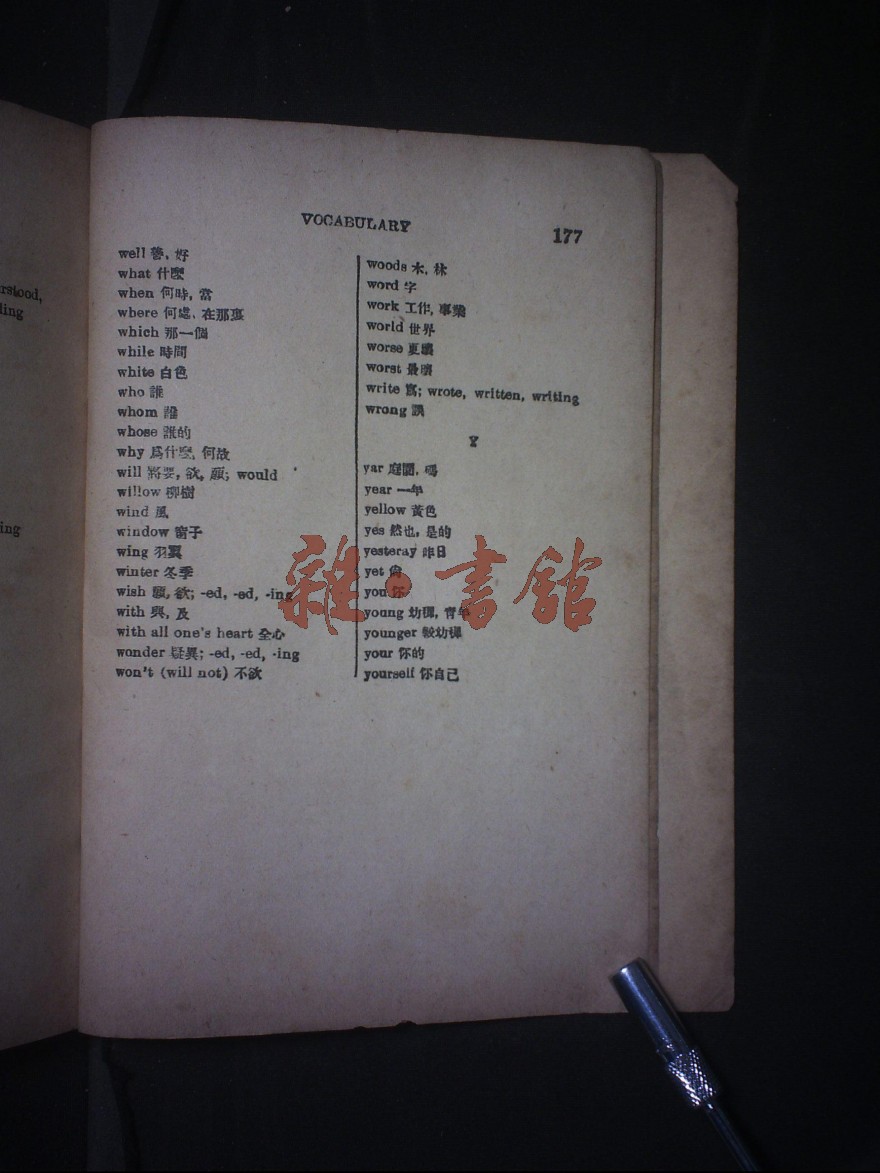 VOCABULARY
177
rstood,
ing
well 善, 好
what 什麼
when 何時, 當
where 何處, 在那裏
which 那一個
while 時間
white 白色
who 誰
whom 誰
whose 誰的
why 爲什麼, 何故
will 將要, 欲, 願; would
willow 柳樹
wind 風
window 窗子
wing 羽翼
winter 冬季
wish 願, 欲; -ed, -ed, -ing
with 與, 及
with all one's heart 全心
wonder 疑異; -ed, -ed, -ing
won't (will not) 不欲
woods 木, 林
word 字
work 工作, 事業
world 世界
worse 更壞
worst 最壞
write 寫; wrote, written, writing
wrong 誤
Y
yar 庭園, 碼
year 一年
yellow 黃色
yes 然也, 是的
yesteray 昨日
yet 尙
you 你
young 幼穉, 青年
younger 較幼穉
your 你的
yourself 你自己
雜·書館